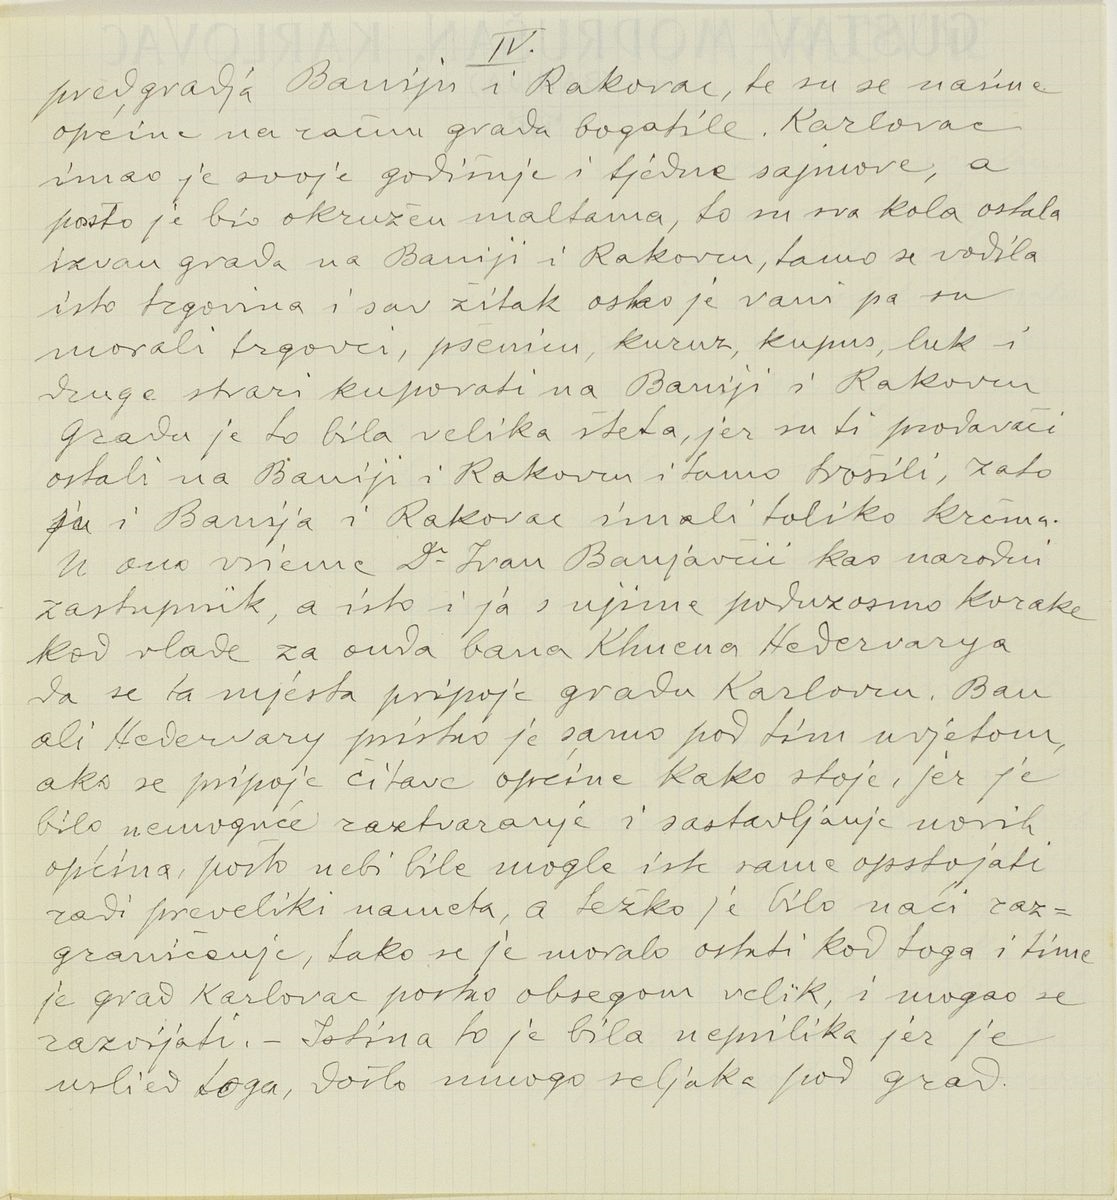 IV.
predgradja Baniju i Rakovac, te su se nasime
općine na račun grada bogatile. Karlovac
imao je svoje godišnje i tjedne sajmove, a
pošto je bio okružen maltama, to su sva kola ostala
izvan grada na Baniji i Rakovcu, tamo se vodila
isto trgovina i sav žitak ostao je vani pa su
morali trgovci, pšenicu, kuruz, kupus, luk i
druge stvari kupovati na Baniji i Rakovcu
Gradu je to bila velika šteta, jer su ti prodavači
ostali na Baniji i Rakovcu i tamo trošili, zato
su i Banija i Rakovac imali toliko krčma.
U ono vrieme Dr. Ivan Banjavčić kao narodni
zastupnik, a isto i ja s njime poduzosmo korake
kod vlade za onda bana Khuena Hedervarya
da se ta mjesta pripoje gradu Karlovcu. Ban
ali Hedervary pristao je samo pod tim uvjetom,
ako se pripoje čitave općine kako stoje, jer je
bilo nemoguće raztvaranje i sastavljanje novih
općina, pošto nebi bile mogle iste same opstojati
radi preveliki nameta, a težko je bilo naći raz=
graničenje, tako se je moralo ostati kod toga i time
je grad Karlovac postao obsegom velik, i mogao se
razvijati. – Istina to je bila neprilika jer je
uslied toga, došlo mnogo seljaka pod grad.
GUSTAV MODRUŠAN, KARLOVAC